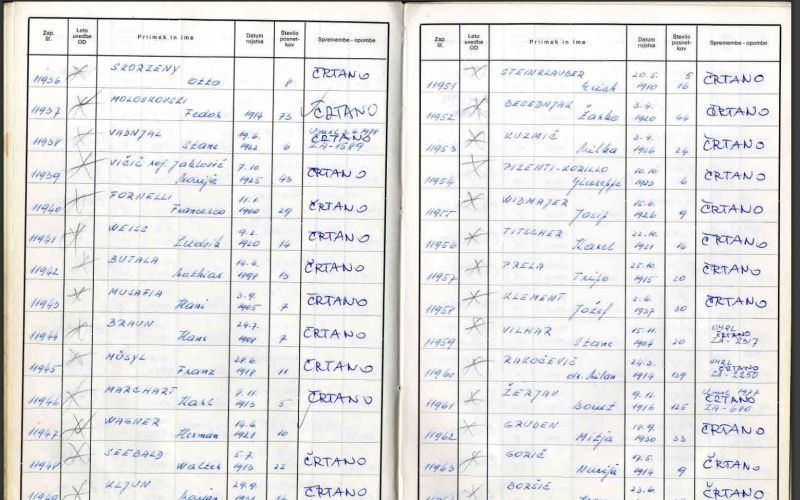 Zap. št. Leto uvedbe OD Priimek in ime Datum rojstva Število posnetkov Spremembe - opombe
11936 SKORZENY Otto 8 ČRTANO
11937 MOLOSKOVSKI Fedor 1914 73 ČRTANO
11938 VADNJAL Stane 19.6. 1922 6 ČRTANO ZA-1589
11939 VIČIČ roj. Jaklovič Marija 7.10. 1925 43 ČRTANO
11940 FORNELLI Francesco 11.1. 1900 29 ČRTANO
11941 WEISS Ludvik 9.2. 1920 14 ČRTANO
11942 BUTALA Mathias 14.6. 1898 13 ČRTANO
11943 MUSAFIA Hani 3.9. 1905 7 ČRTANO
11944 BRAUN Hans 24.7. 1908 7 ČRTANO
11945 MÜSYL Franz 28.6. 1918 11 ČRTANO
11946 MARCHART Karl 9.11. 1913 5 ČRTANO
11947 WAGNER Herman 14.6. 1921 10
11948 SEEBALD Walter 5.7. 1913 22 ČRTANO
KLJUN 29.9. ČRTANO
Zap. št. Leto uvedbe OD Priimek in ime Datum rojstva Število posnetkov Spremembe - opombe
11951 STEINKLAUBER Erich 20.5. 1910 16 ČRTANO
11952 BESEDNJAK Žarko 3.4. 1920 44 ČRTANO
11953 KUZMIČ Milka 3.9. 1926 24 ČRTANO
11954 PIZENTI-KORILLO Giuseppe 10.10. 1923 6 ČRTANO
11955 WIDMAJER Josif 15.6. 1926 9 ČRTANO
11956 TITSCHER Karel 22.10. 1921 16 ČRTANO
11957 PRELA Tripo 25.10. 1915 20 ČRTANO
11958 KLEMENT Jožef 2.6. 1937 30 ČRTANO
11959 VILHAR Stane 15.11. 1904 20 UMRL ČRTANO ZA-2317
11960 RAKOČEVIĆ dr. Milan 24.3. 1914 139 UMRL ČRTANO ZA-2250
11961 ŽERJAV Borut 9.12. 1916 125 Umrl 1977 ČRTANO ZA-680
11962 GRUDEN Mitja 14.9. 1930 33 ČRTANO
11963 GORIČ Marija 17.5. 1914 9 ČRTANO
BORŠIČ 23.6. ČRTANO